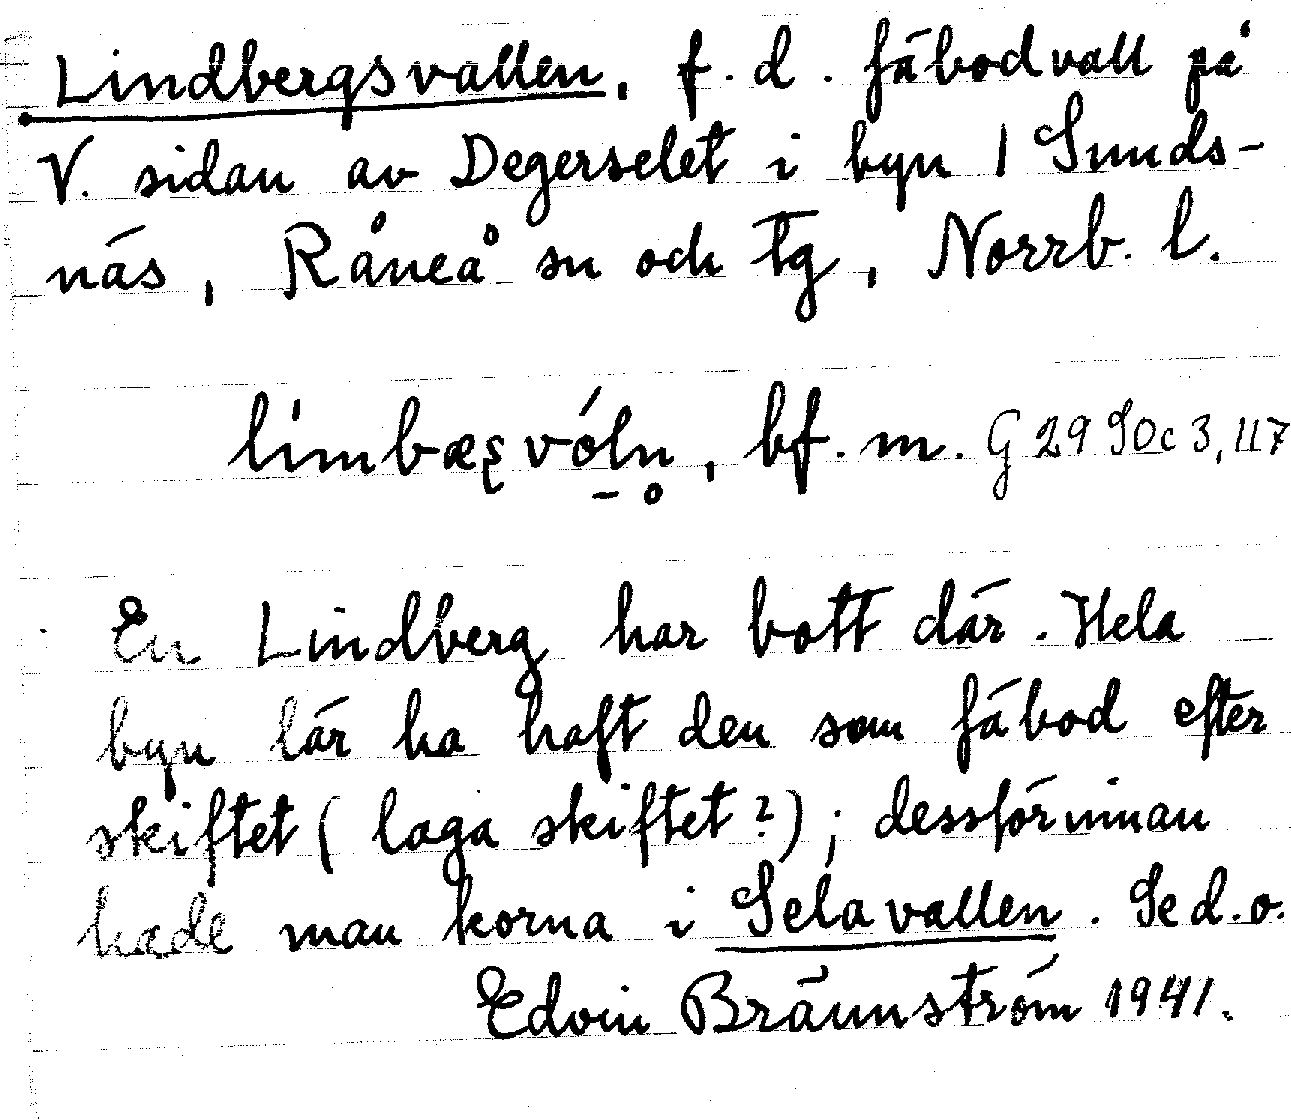 Lindbergsvallen, f. d. fäbodvall på
V. sidan av Degerselet i byn 1 Sunds-
näs, Råneå sn och tg, Norrb. l.
bf. m. G 29 Soc 3, 117
En Lindberg har bott där. Hela
byn lär ha haft den som fäbod efter
skiftet (laga skiftet?); dessförinnan
hade man korna i Selavallen. Se d.o.
Edvin Brännström 1941.